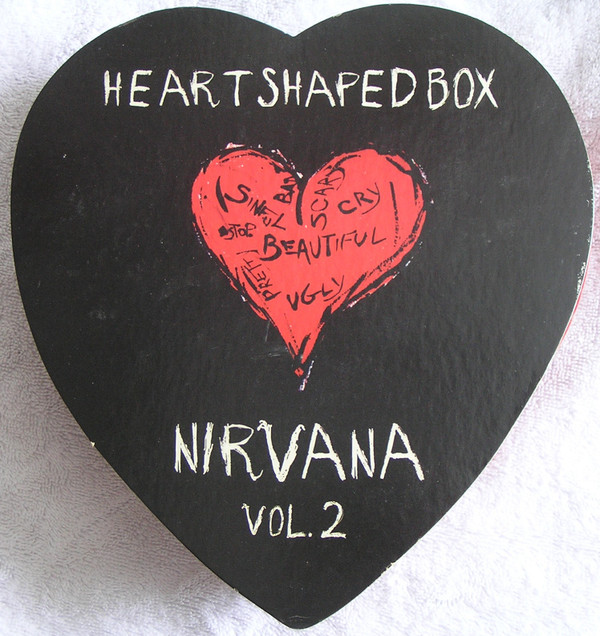 HEART SHAPED BOX
BAD
SCARY
CRY
STOP
BEAUTIFUL
PRETTY
UGLY
NIRVANA
VOL. 2